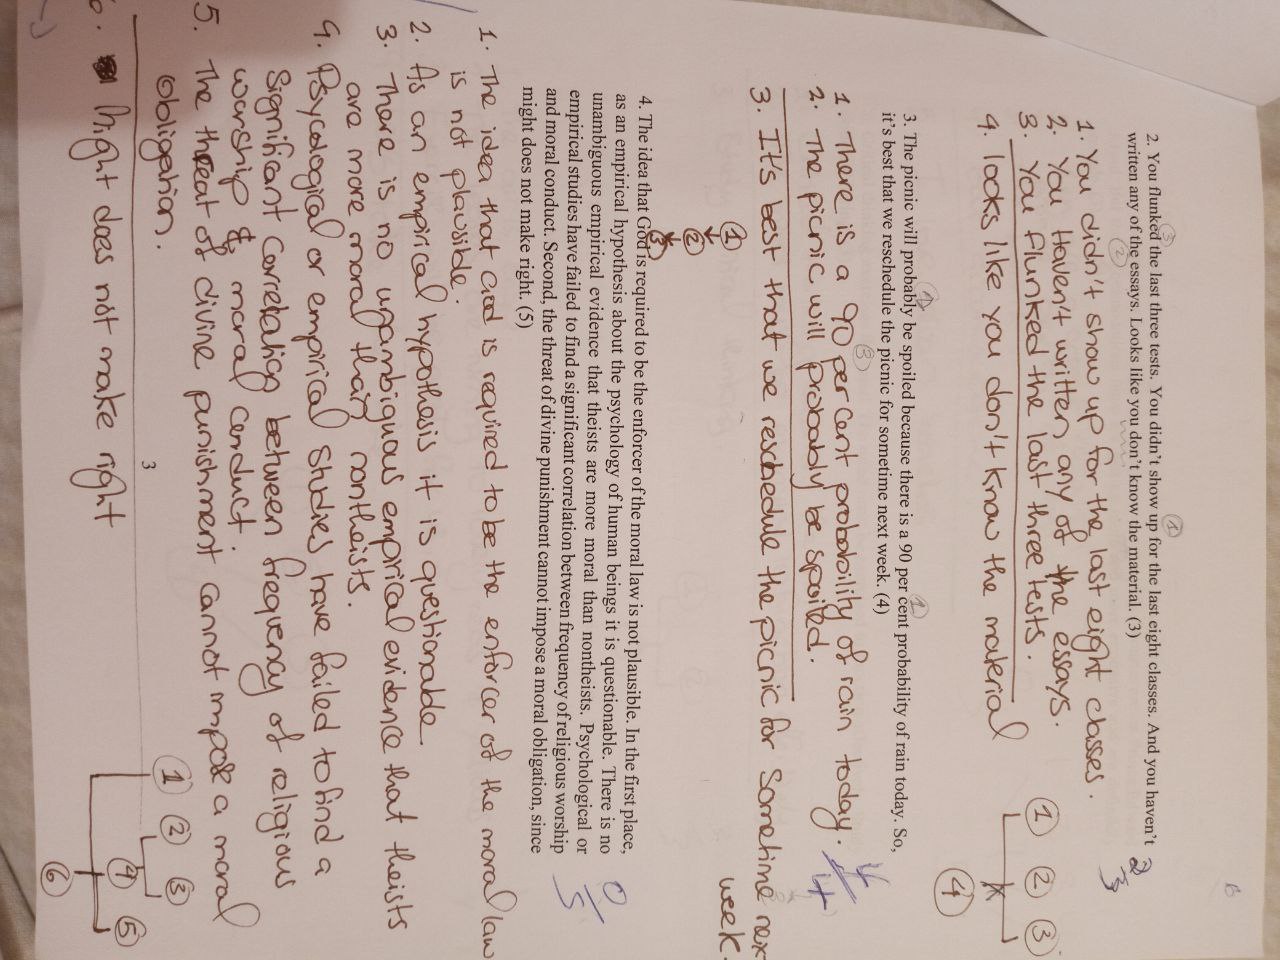 6
2. You flunked the last three tests. You didn't show up for the last eight classes. And you haven't
written any of the essays. Looks like you don't know the material. (3)
3
1
2
2
3
1. You didn't show up for the last eight classes.
2. You Haven't written any of the essays.
3. You flunked the last three tests.
4. looks like you don't know the material
1 2 3
4
3. The picnic will probably be spoiled because there is a 90 per cent probability of rain today. So,
it's best that we reschedule the picnic for sometime next week. (4)
1
3
1. There is a 90 per cent probability of rain today.
2. The picnic will probably be spoiled.
3. It's best that we reschedule the picnic for sometime nex
week.
4
4
1
2
3
4. The idea that God is required to be the enforcer of the moral law is not plausible. In the first place,
as an empirical hypothesis about the psychology of human beings it is questionable. There is no
unambiguous empirical evidence that theists are more moral than nontheists. Psychological or
empirical studies have failed to find a significant correlation between frequency of religious worship
and moral conduct. Second, the threat of divine punishment cannot impose a moral obligation, since
might does not make right. (5)
0
5
1. The idea that God is required to be the enforcer of the moral law
is not plausible.
2. As an empirical hypothesis it is questionable.
3. There is no unambiguous emprical evidence that theists
are more moral than nontheists.
4. Psycological or empirical studies have failed to find a
Significant Correlation between frequency of religious
worship & moral conduct.
5. The threat of divine punishment cannot impose a moral
obligation.
6. Might does not make right
3
1 2 3
4 5
6